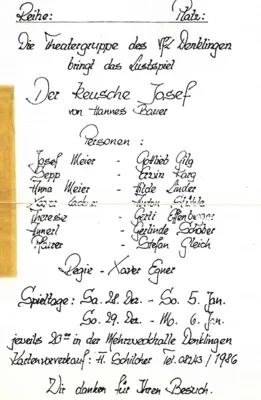 Reihe: Platz:
Die Theatergruppe des VfL Denklingen
bringt das Lustspiel
Der keusche Josef
von Hannes Bauer
Personen:
Josef Meier - Gottlieb Gilg
Sepp - Erwin Karg
Anna Meier - Hilde Linder
- Anton
Therese - Gerti
Annerl - Gerlinde Schober
Pfarrer - Stefan Gleich
Regie - Xaver Egner
Spieltage: Sa. 28. Dez. - So. 5. Jan.
So. 29. Dez. - Mo. 6. Jan.
jeweils 20⁰⁰ in der Mehrzweckhalle Denklingen
Kartenvorverkauf: H. Schilcher Tel. 08243/1986
Wir danken für Ihren Besuch.